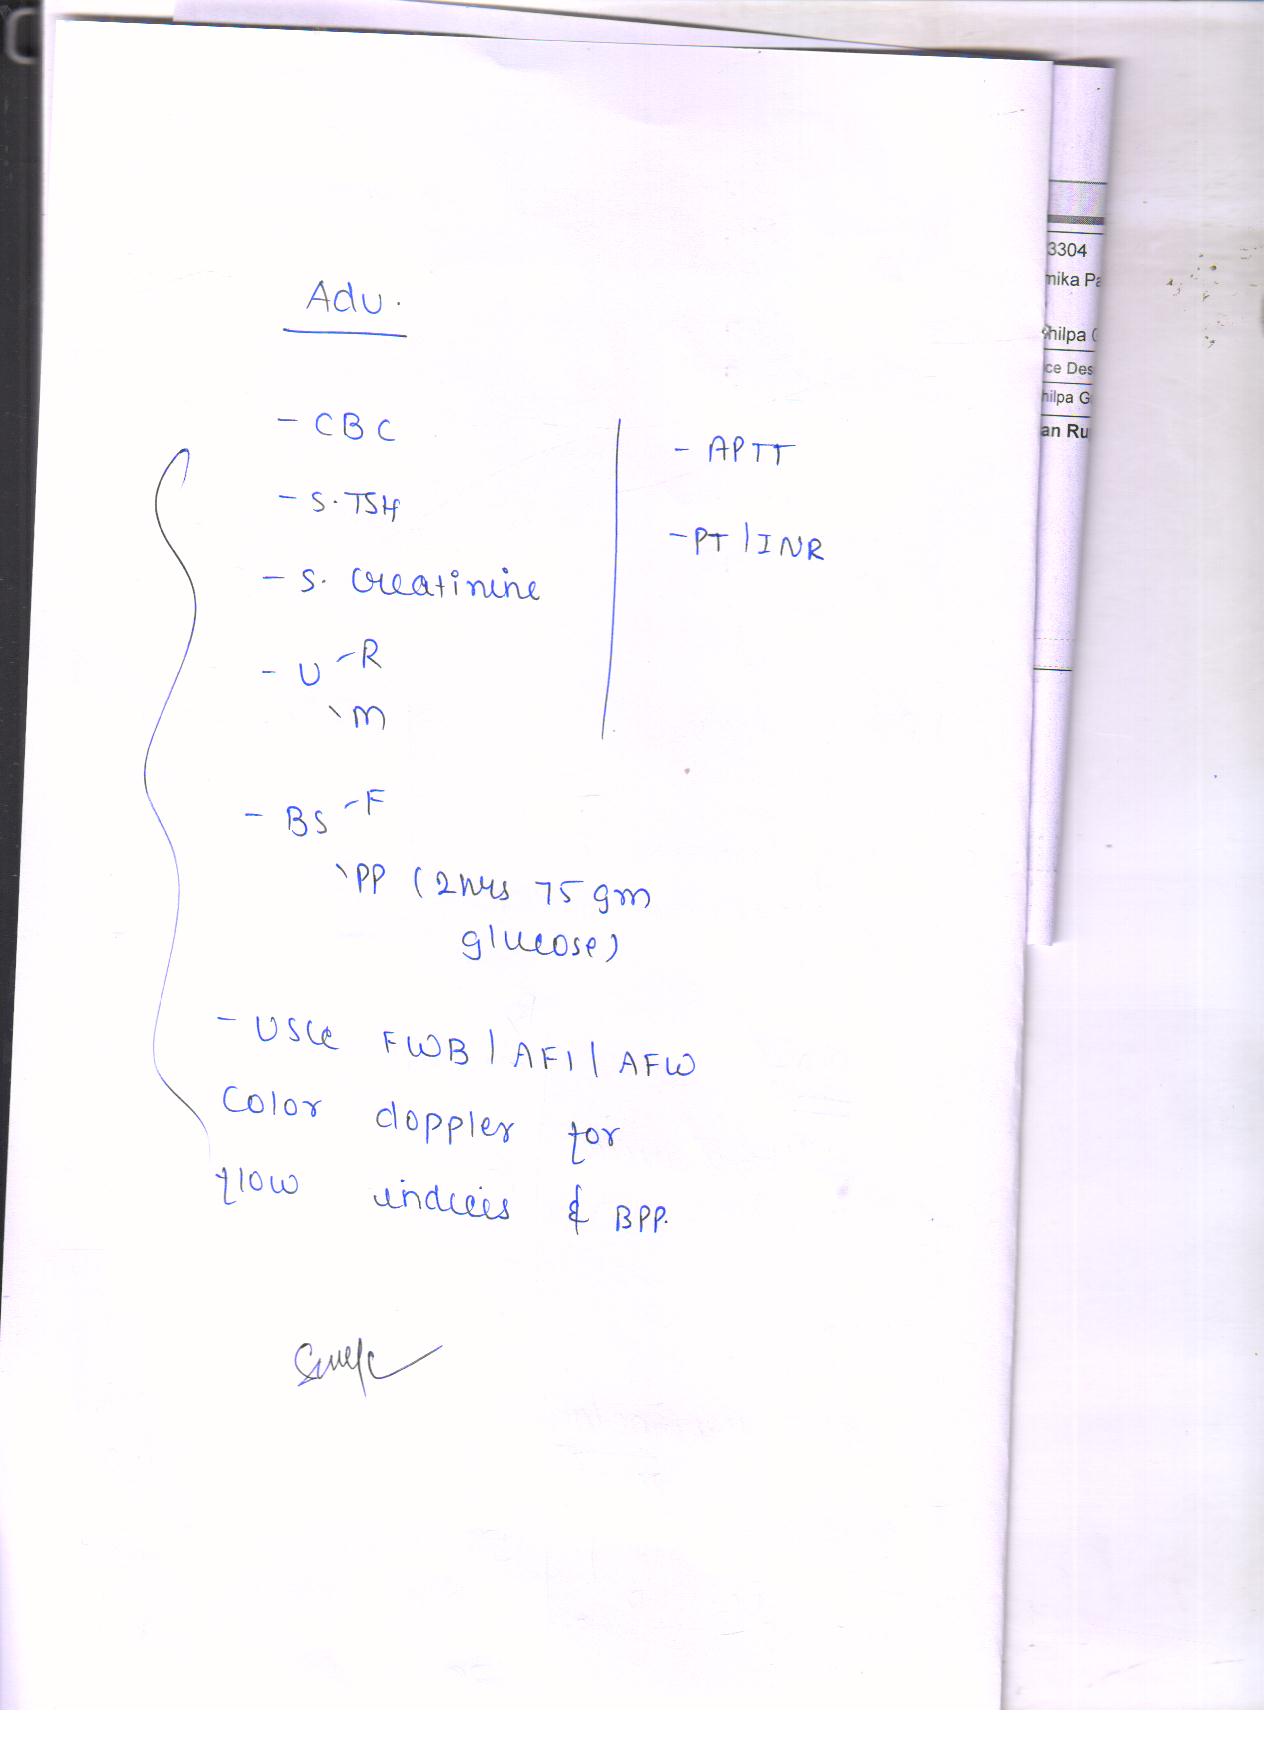 Adv.
- CBC
- S. TSH
- S. Creatinine
- U - R
- M
- BS - F
- PP (2hrs 75 gm
glucose)
- USG FWB / AFI / AFW
Color doppler for
flow indices & BPP.
- APTT
- PT / INR
3304
nika Pa
hilpa G
ce Des
hilpa G
an Ru